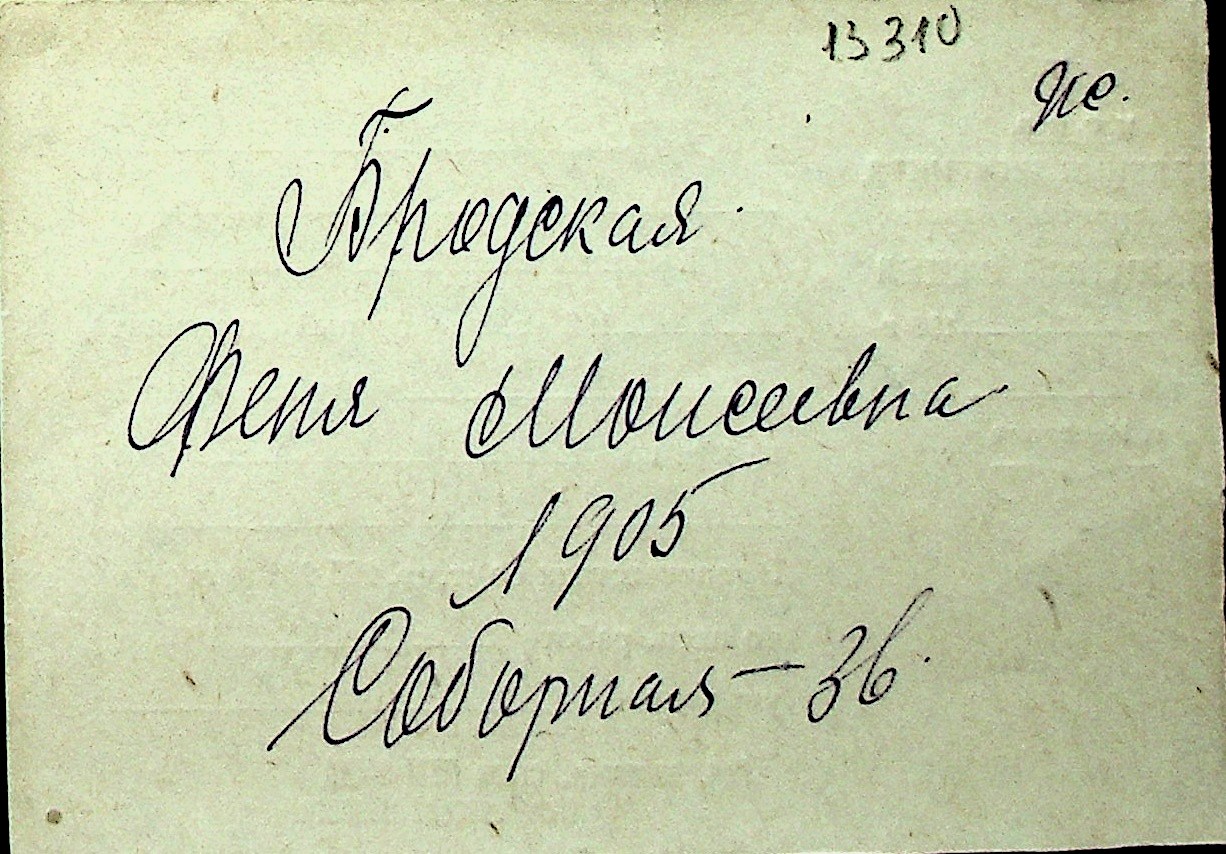 13310
Бродская
Феня Моисеевна
1905
Соборная - 36